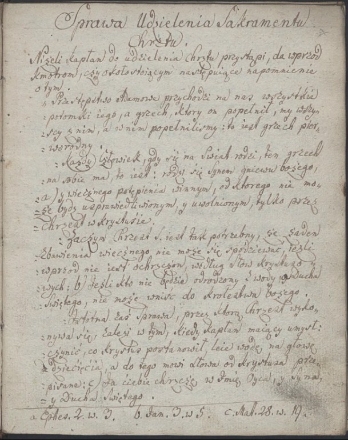 Sprawa Udzielenia Sakramentu
Chrztu.
Niżeli Kapłan do udzielenia chrztu przystąpi, da wprzod
Kmotrom, y około stoiącym następuiące napomnienie
o tym.
Przestępstwo Adamowe przychodzi na nas wszystkie
potomki iego, a grzech, ktory on popełnił, my wszy-
scy z nim, a w nim popełnilismy: to iest grzech pier-
worodny.
Każdy człowiek, gdy się na swiat rodzi, ten grzech
na sobie ma, to iest: rodzi się synem gniewu bożego,
a) y wiecznego potępienia winnym, od ktorego nie mo-
że być usprawiedliwionym, y uwolnionym, tylko przez
Chrzest w Krystusie.
Zaczym Chrzest S. iest tak potrzebny, że żaden
zbawienia wiecznego nie może się spodziewać, ieżli
wprzod nie iest ochrzczon, według słow Krystusowych:
b) Jeźli kto nie będzie odrodzony z wody y Ducha
Swiętego, nie może wniść do Krolestwa bożego.
Istotna zaś Sprawa, przez ktorą chrzest wyko-
nywa się, zależy w tym, kiedy Kapłan maiący umysł
czynić, co Krystus postanowił, leie wodę na głowę
dziecięcia, a do tego mowi słowa od Krystusa prze-
pisane: c) Ja ciebie chrzczę w Imię Oyca, y Syna,
y Ducha Swiętego.
a Ephes. 2. w. 3. b Jan. 3. w 5. c. Math. 28. w. 19.